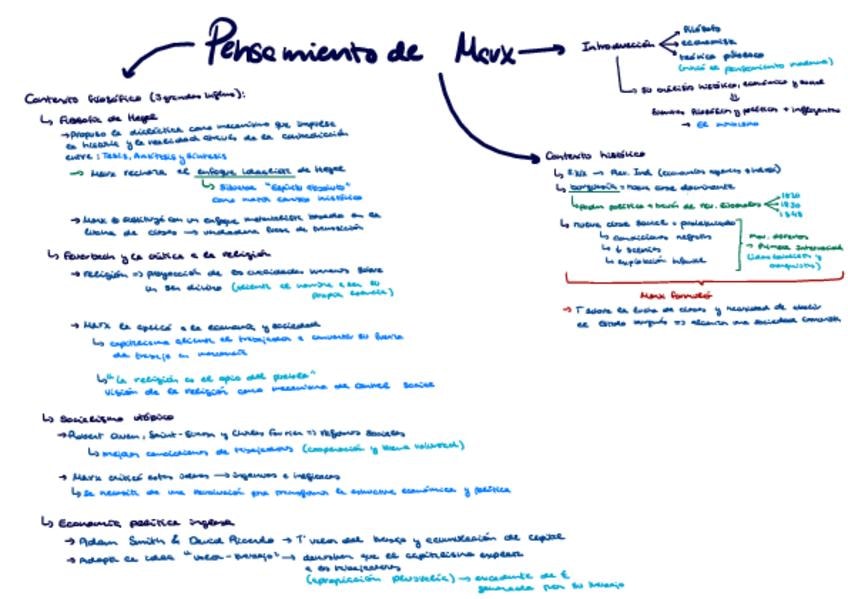 Pensamiento de Marx
Introducción
filósofo
economista
teórico político
(inició el pensamiento moderno)
su análisis histórico, económico y social
El marxismo
Contexto filosófico (3 grandes influjos):
Filosofía de Hegel
Propuso la dialéctica como mecanismo que impulsa
la historia y la realidad a través de la contradicción
entre: Tesis, Antítesis y Síntesis
Marx rechaza el enfoque idealista de Hegel
"Espíritu absoluto"
como motor cambio histórico
Marx lo sustituyó con un enfoque materialista basado en la
lucha de clases → verdadera base de transición
Feuerbach y la crítica a la religión
religión => proyección de las cualidades humanas sobre
un ser divino (aliena al hombre a en su
propia esencia)
Marx la aplicó a la economía y sociedad
capitalismo aliena al trabajador a convertir su fuerza
de trabajo en mercancía
"La religión es el opio del pueblo"
visión de la religión como mecanismo de control social
Socialismo utópico
Robert Owen, Saint-Simon y Charles Fourier => reformas sociales
mejorar condiciones de trabajadores (cooperación y buena voluntad)
Marx criticó estas ideas → ingenuas e ineficaces
Se necesita de una revolución que transforme la estructura económica y política
Economía política inglesa
Adam Smith & David Ricardo → Tª valor del trabajo y acumulación de capital
Adopta la idea "valor-trabajo" → que el capitalismo explota
a los trabajadores
(apropiación plusvalía) → excedente de £
generado por su trabajo
Contexto histórico
S.XIX → Rev. Ind
burguesía = nueva clase dominante
poder político a través de rev. liberales
1820
1830
1848
nueva clase social = proletariado
condiciones
salarios
explotación infantil
mov. obreros
Primera Internacional
(socialistas y
anarquistas)
Marx formuló
Tª sobre la lucha de clases y necesidad de abolir
el Estado burgués => alcanzar una sociedad comunista